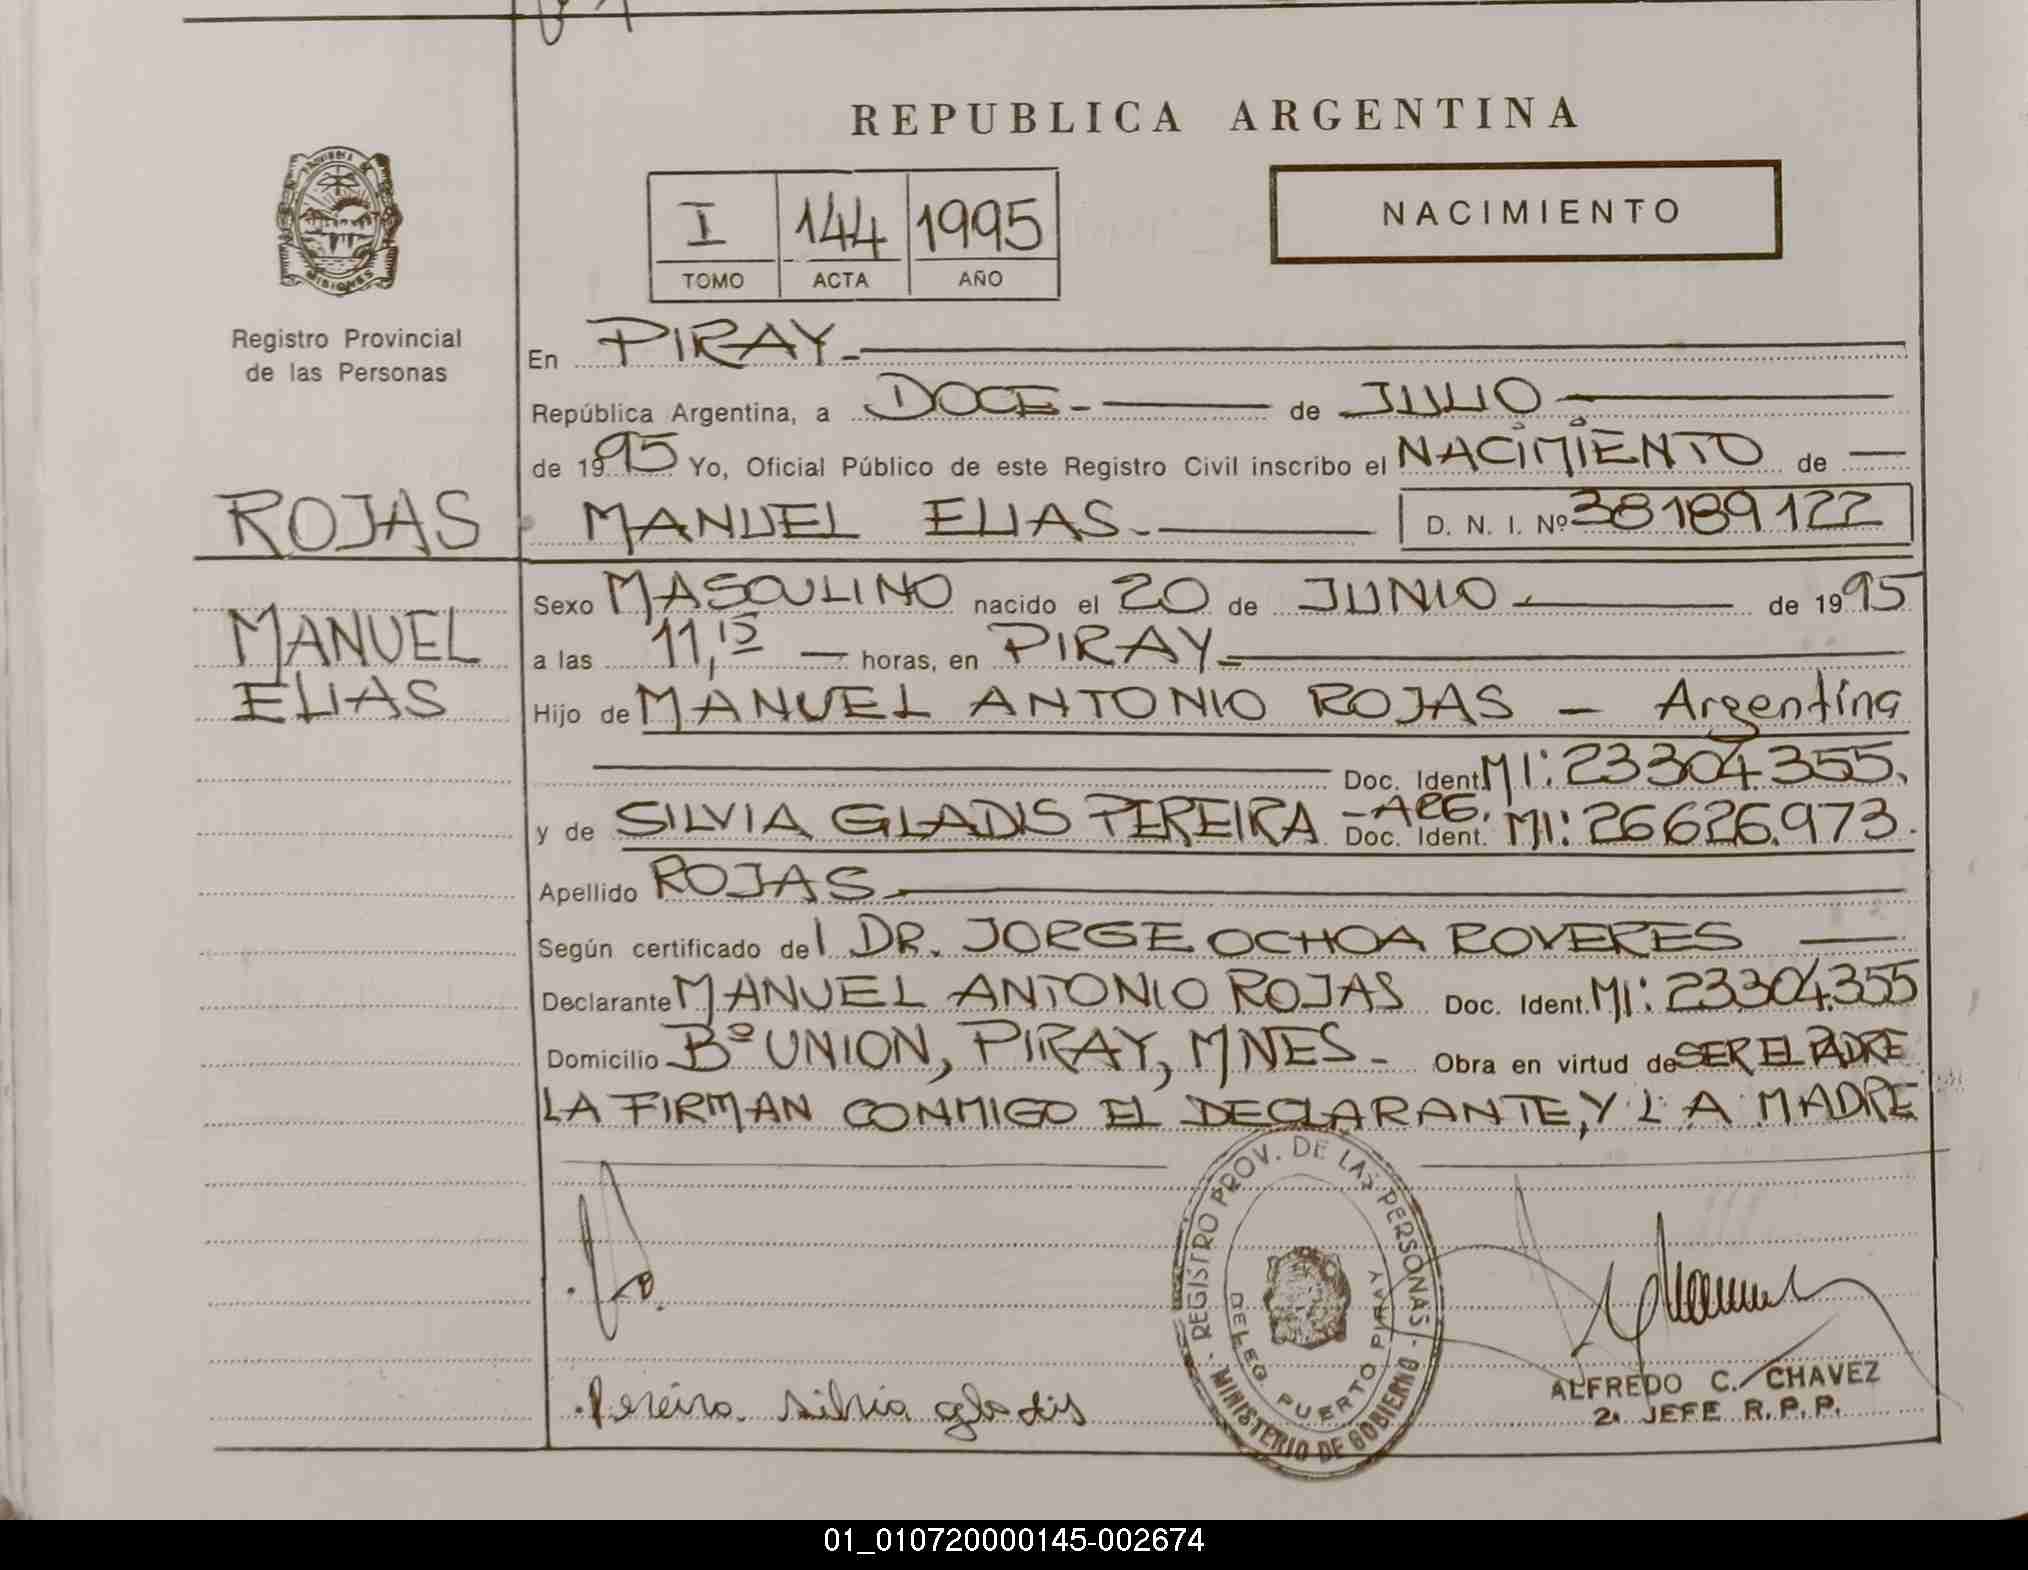 REPUBLICA ARGENTINA
PROVINCIA DE
MISIONES
I 144 1995
TOMO ACTA AÑO
NACIMIENTO
Registro Provincial
de las Personas
En PIRAY
República Argentina, a DOCE de JULIO
de 1995 Yo, Oficial Público de este Registro Civil inscribo el NACIMIENTO de
ROJAS
MANUEL ELIAS D. N. I. Nº 38189122
MANUEL
ELIAS
Sexo MASCULINO nacido el 20 de JUNIO de 1995
a las 11,15 horas, en PIRAY
Hijo de MANUEL ANTONIO ROJAS - Argentina
Doc. Ident. MI: 23304.355.
y de SILVIA GLADIS PEREIRA - ARG. Doc. Ident. MI: 26626.973.
Apellido ROJAS
Según certificado del DR. JORGE OCHOA ROVERES
Declarante MANUEL ANTONIO ROJAS Doc. Ident. MI: 23304.355
Domicilio Bº UNION, PIRAY, MNES- Obra en virtud de SER EL PADRE
LA FIRMAN CONMIGO EL DECLARANTE, Y LA MADRE
REGISTRO PROV. DE LAS PERSONAS
DELEG. PUERTO PIRAY
MINISTERIO DE GOBIERNO
Pereira silvia gladis
ALFREDO C. CHAVEZ
2. JEFE R.P.P.
01_010720000145-002674